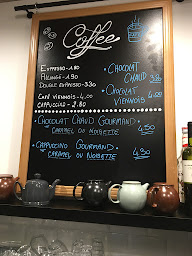 Coffee
Espresso - 1.90
Allongé - 1.90
Double Espresso - 3.30
Café Viennois - 4.00
Cappuccino - 3.80
• Chocolat
Chaud
• Chocolat
Viennois
• Chocolat Chaud Gourmand -
Caramel ou Noisette 4.50
• Cappuccino Gourmand -
Caramel ou Noisette 4.30